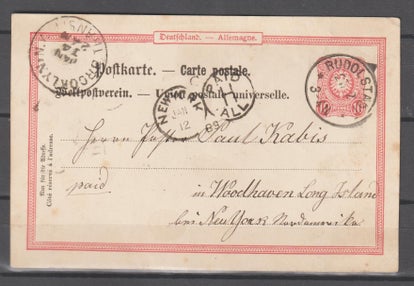 Deutschland. - Allemagne.
Postkarte. — Carte postale.
Weltpostverein. — Union postale universelle.
BROOKLYN, N.Y.
JAN
14
TRANSIT
NEW
JAN
12
88
PAID
ALL
* RUDOLSTADT
Nur für die Adresse.
Côté réservé à l'adresse.
Herrn Pastor Paul Kabis
paid
in Woodhaven Long Island
bei New York Nordamerika